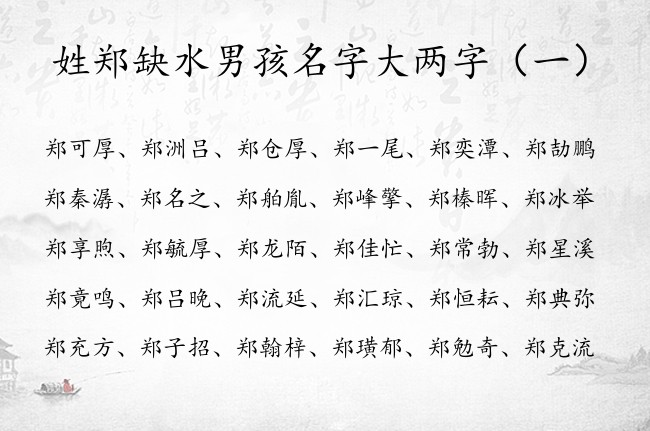 姓郑缺水男孩名字大两字（一）
郑可厚、郑洲吕、郑仓厚、郑一尾、郑奕潭、郑劼鹏
郑秦潺、郑名之、郑舶胤、郑峰擎、郑榛晖、郑冰举
郑享煦、郑毓厚、郑龙陌、郑佳忙、郑常勃、郑星溪
郑竟鸣、郑吕晚、郑流延、郑汇琼、郑恒耘、郑典弥
郑充方、郑子招、郑翰梓、郑璜郁、郑勉奇、郑克流